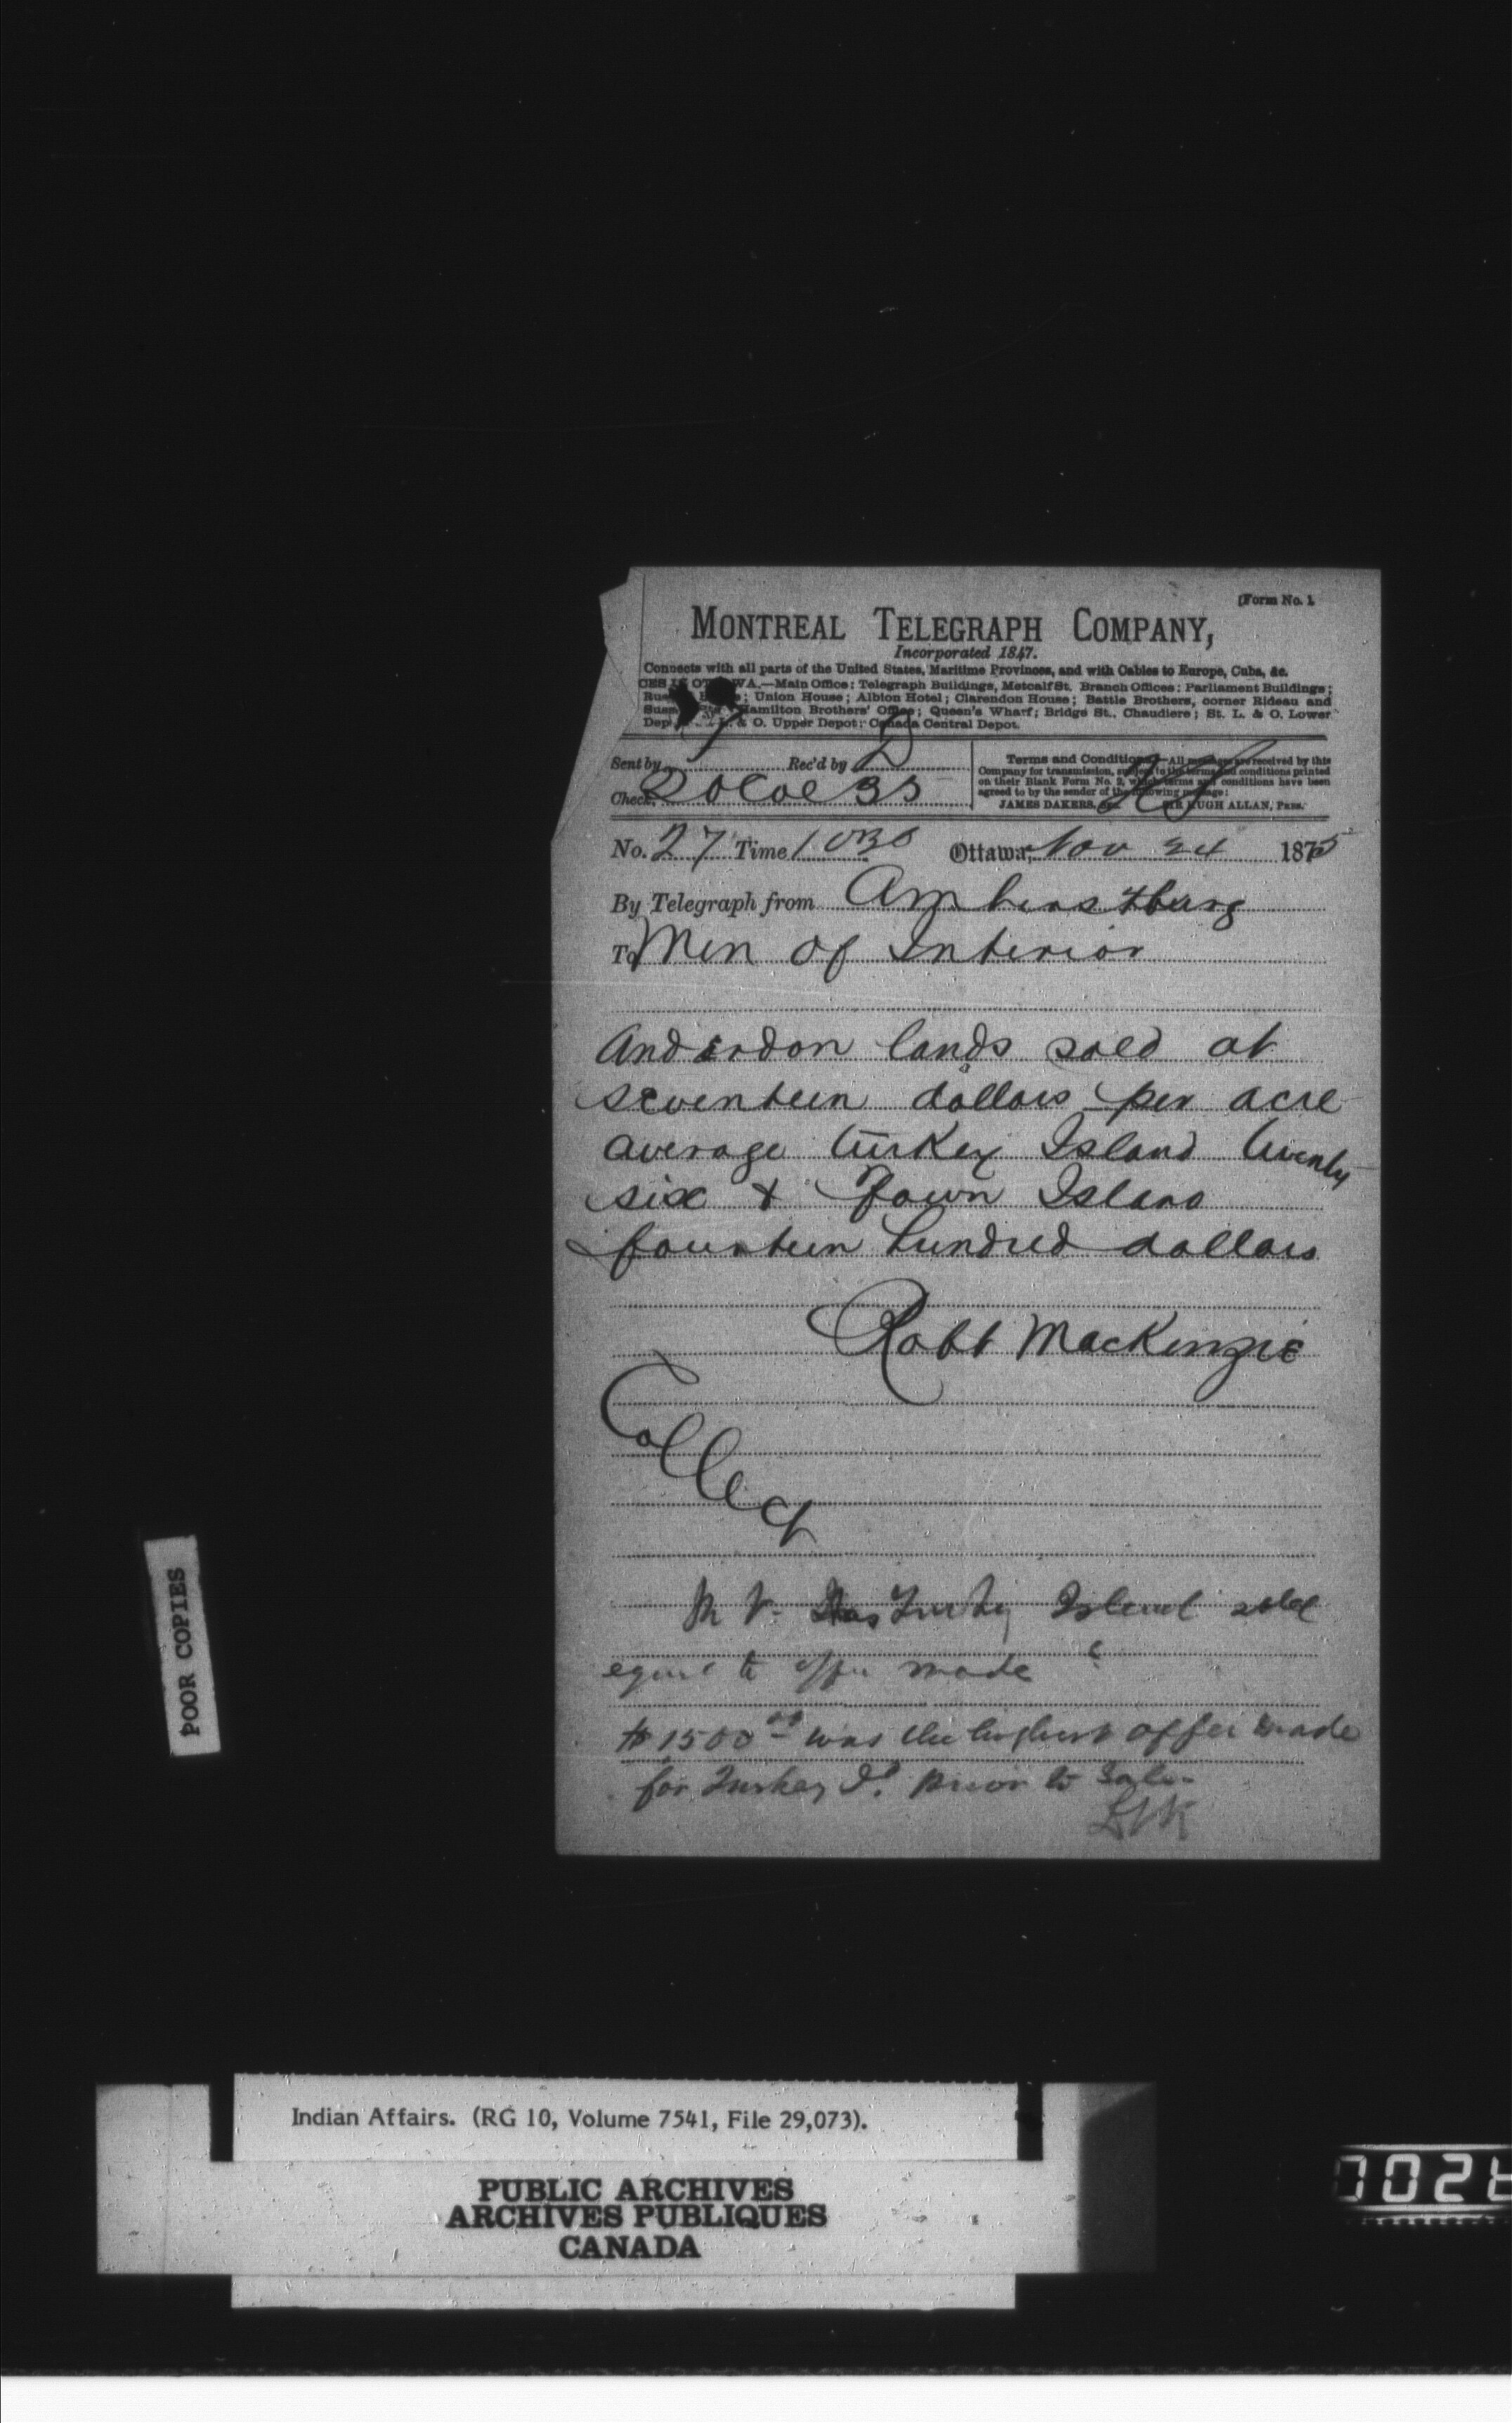 [Form No. 1.
MONTREAL TELEGRAPH COMPANY,
Incorporated 1847.
Connects with all parts of the United States, Maritime Provinces, and with Cables to Europe, Cuba, &c.
WA.—Main Office; Telegraph Buildings, Metcalf St. Branch Offices; Parliament Buildings;
; Union House; Albion Hotel; Clarendon House; Battle Brothers, corner Rideau and
Hamilton Brothers' Office; Queen's Wharf; Bridge St., Chaudiere; St. L. & O. Lower
& O. Upper Depot; Canada Central Depot.
Sent by Rec'd by D
Check. 20 Col 35
Terms and Conditions.—All messages are received by this
Company for transmission, subject to the terms and conditions printed
on their Blank Form No. 2, which terms and conditions have been
agreed to by the sender of the following message:
JAMES DAKERS, Sec. SIR HUGH ALLAN, Pres.
No. 27 Time 1030 Ottawa, Nov 24 1875
By Telegraph from Amherstburg
To Min of Interior
Anderdon lands sold at
seventeen dollars per acre
average turkey Island twenty
six & Fawn Island
fourteen hundred dollars
Robt MacKenzie
Collect
Mr V. Has Turkey Island sold
equal to offer made ?
$1500.00 was the highest offer made
for Turkey Id. prior to Sale.
POOR COPIES
Indian Affairs. (RG 10, Volume 7541, File 29,073).
PUBLIC ARCHIVES
ARCHIVES PUBLIQUES
CANADA